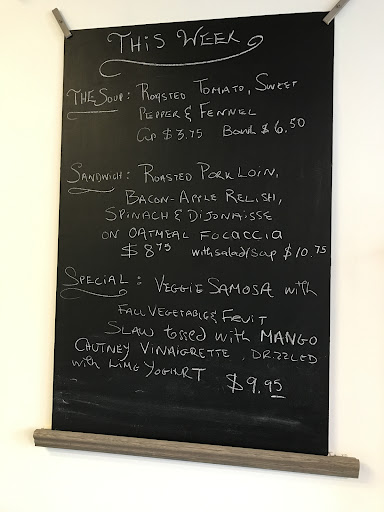 This Week
The Soup: Roasted Tomato, Sweet
Pepper & Fennel
Cup $3.75 Bowl $6.50
Sandwich: Roasted Pork Loin,
Bacon-Apple Relish,
Spinach & Dijonaisse
on Oatmeal Focaccia
$8.75 with salad/soup $10.75
Special: Veggie Samosa with
Fall Vegetable & Fruit
Slaw tossed with Mango
Chutney Vinaigrette, Drizzled
with Lime Yoghurt $9.95